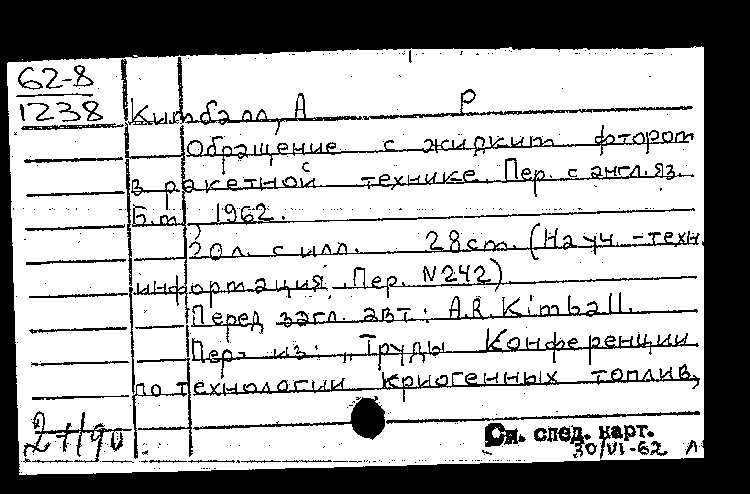 62-8
1238
Кимбалл, А Р
Обращение с жидким фтором
в ракетной технике. Пер. с англ. яз.
Б.м., 1962.
20л. с илл. 28cm. (Науч.-техн.
информация. Пер. N242)
Перед загл. авт.: A.R. Kimball.
Пер. из: „Труды Конференции
по технологии криогенных топлив,
См. след. карт.
30/VI-62